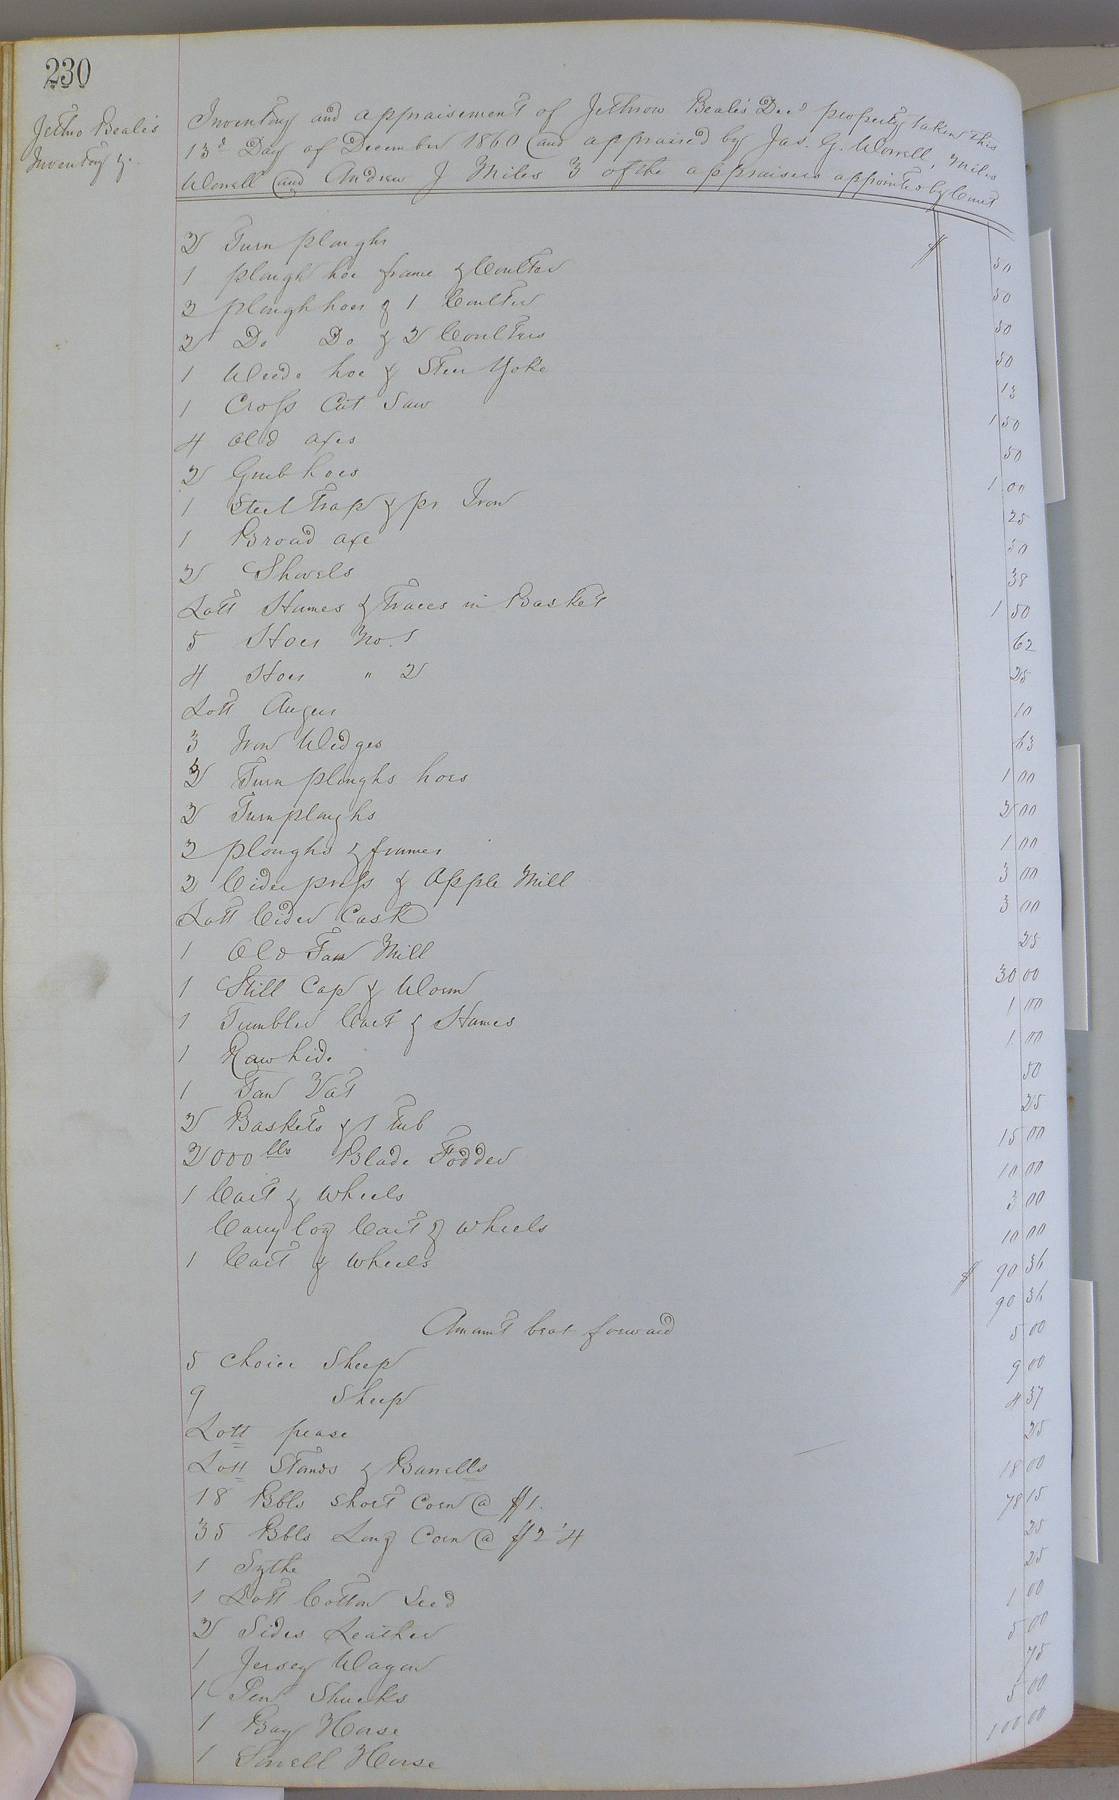 230
Jethro Beale's
Inventory &c.
Inventory and appraisement of Jethrow Beale's Decd property taken this
13d Day of December 1860 and appraised by Jas. G. Worrell, Miles
Worrell and Andrew J Miles 3 of the appraisers appointed by Court
2 Turn ploughs $ 50
1 plough hoe frame & Coulter 50
3 plough hoes & 1 Coulter 50
2 Do Do & 2 Coulters 50
1 Weede hoe & Steer Yoke 13
1 Cross Cut Saw 1 50
4 old axes 50
2 Grub hoes 1 00
1 Steel trap & pr Iron 25
1 Broad axe 50
2 Shovels 38
Lott Hames & Traces in Basket 1 50
5 Hoes No. 1 62
4 Hoes " 2 25
Lott Augers 10
3 Iron Wedges 63
3 Turn ploughs hoes 1 00
2 Turnploughs 2 00
2 ploughs & frames 1 00
2 Cider press & Apple Mill 3 00
Lott Cider Cask 3 00
1 Old Fan Mill 25
1 Still Cap & Worm 30 00
1 Tumbler Cart & Hames 1 00
1 Rawhide 1 00
1 Tan Vat 50
2 Baskets & 1 Tub 25
2000 lbs Blade Fodder 15 00
1 Cart & Wheels 10 00
Carry log Cart & wheels 3 00
1 Cart & Wheels 10 00
$ 90 36
Amount brot forward 90 36
5 choice Sheep 5 00
9 Sheep 9 00
Lott pease 4 37
Lott Stands & Barrells 25
18 Bbls short corn @ $1. 18 00
35 Bbls Long Corn @ $2 1/4 78 15
1 Sythe 25
1 Lott Cotton Seed 25
2 Sides Leather 1 00
1 Jersey Wagon 5 00
1 Pen Shucks 75
1 Bay Horse 5 00
1 Sorrell Horse 100 00